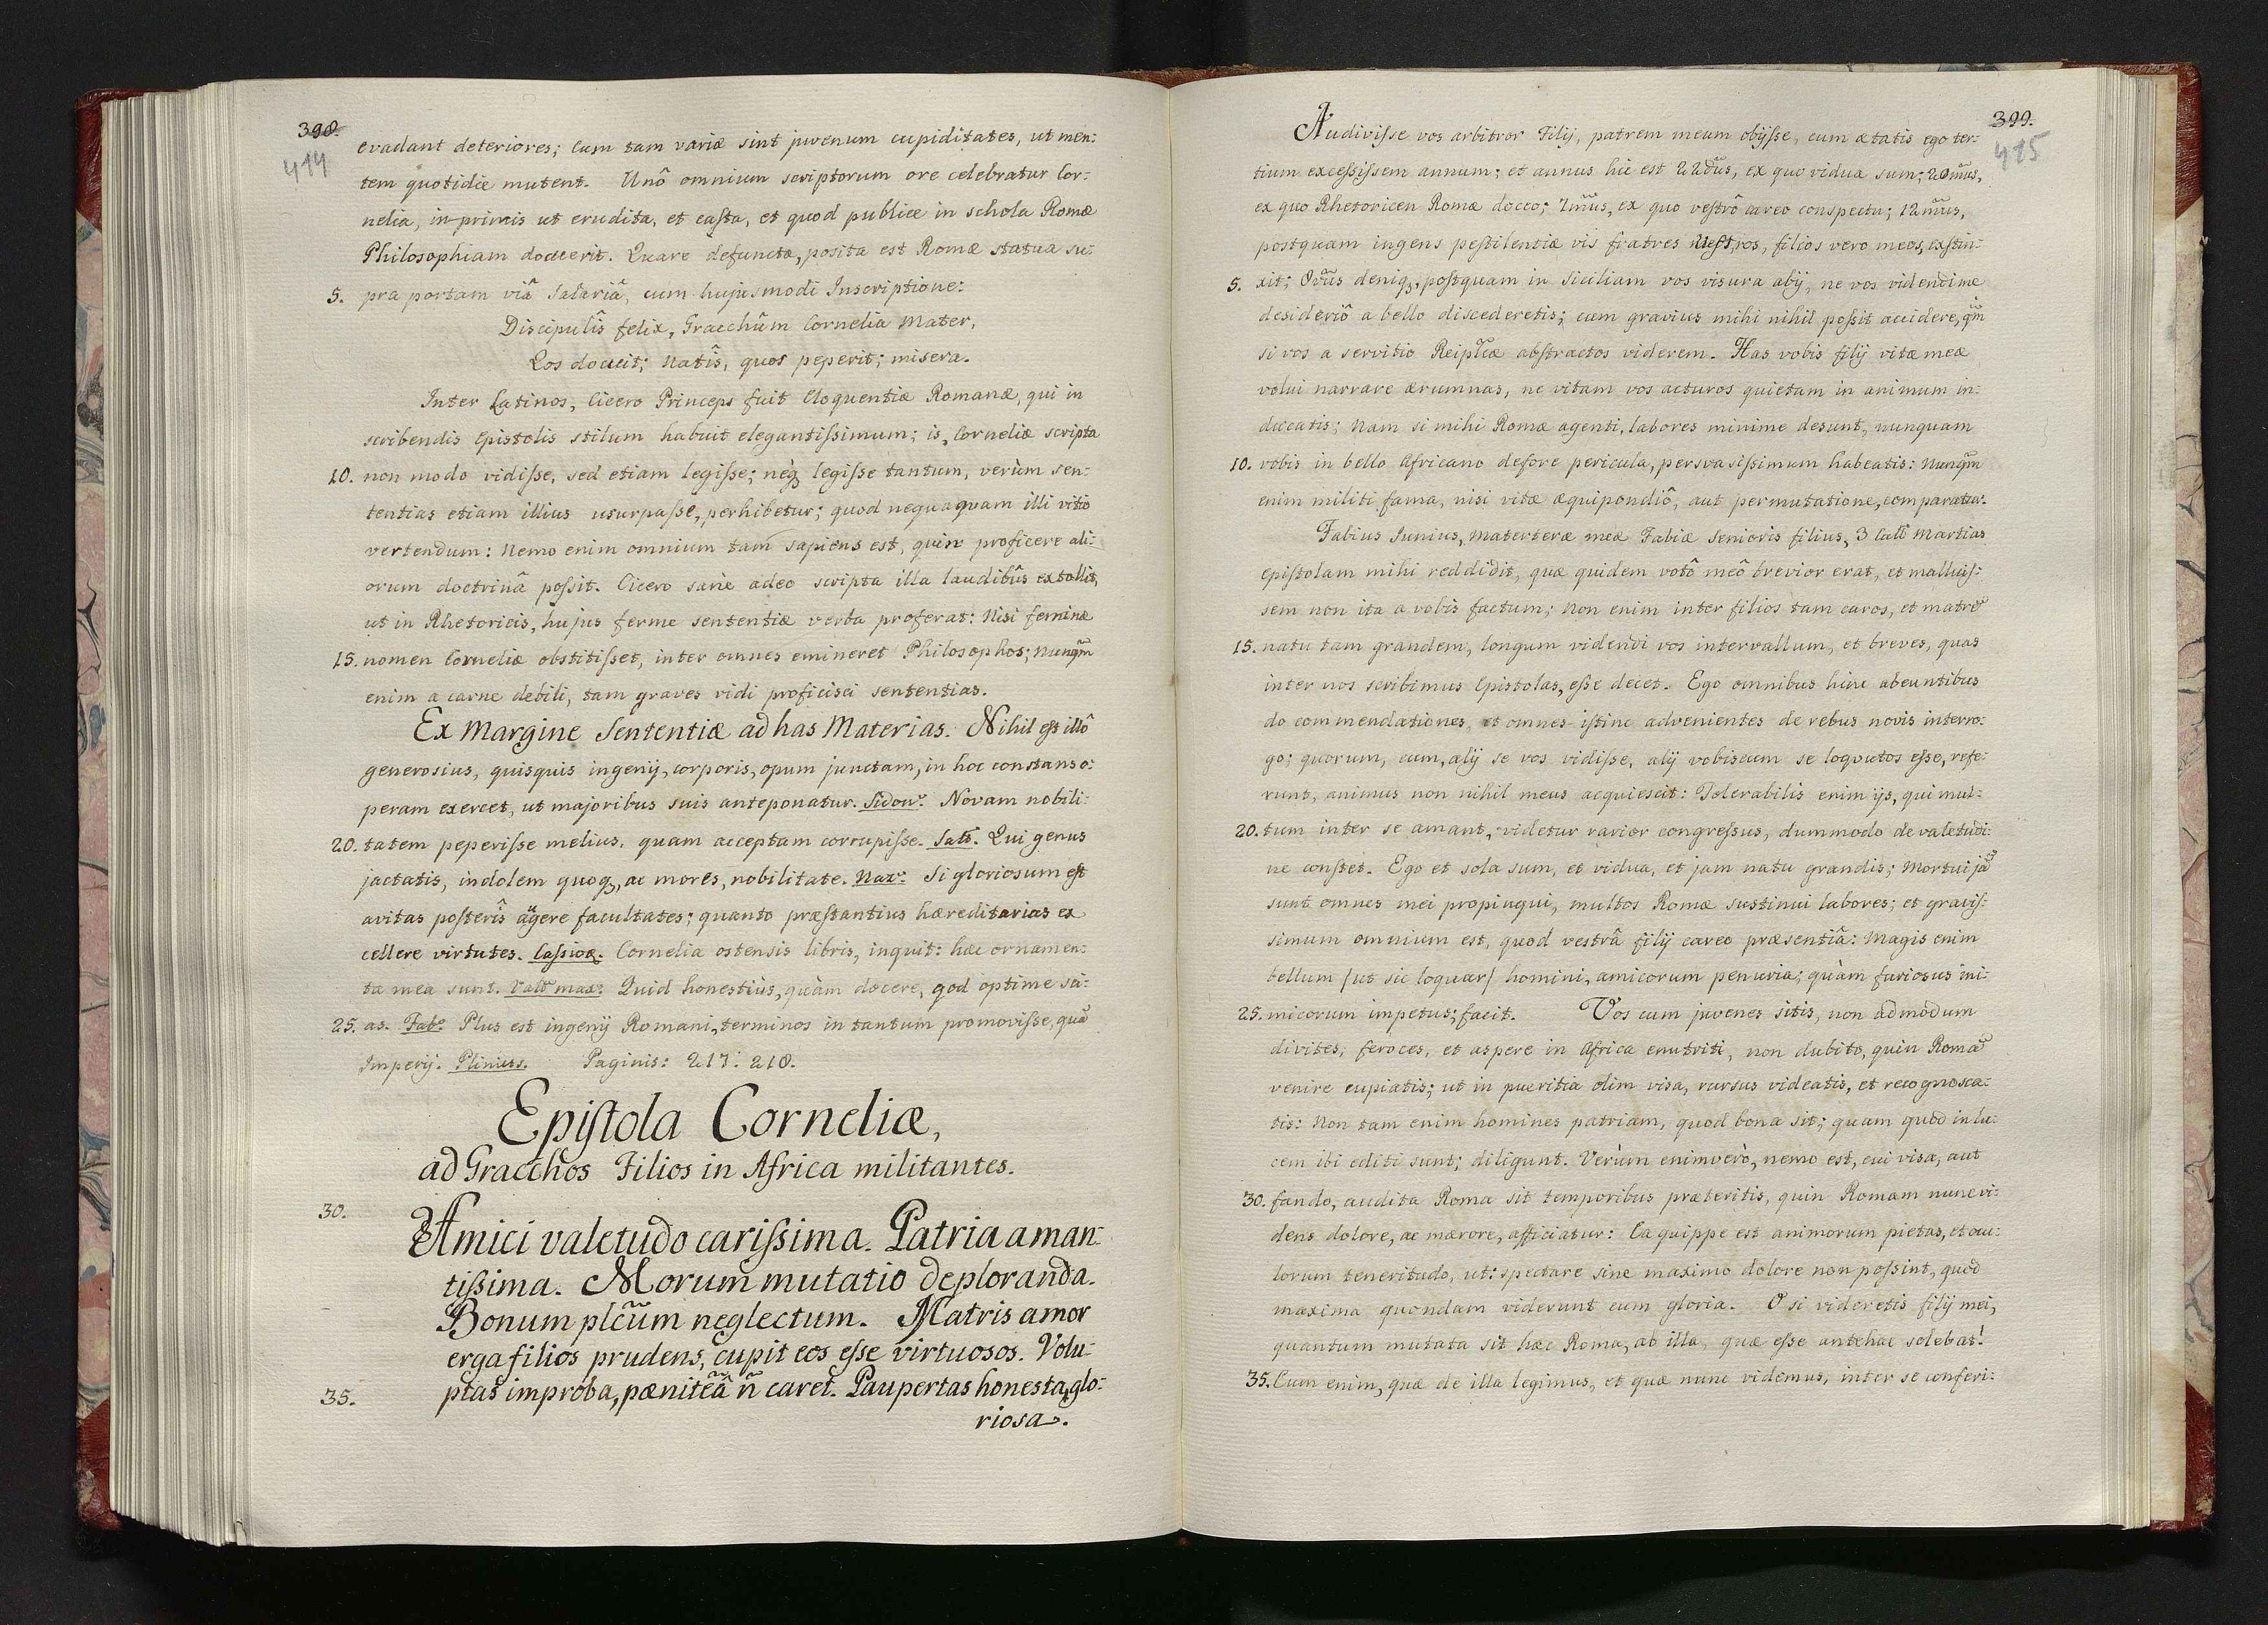 398.
414
evadant deteriores; Cum tam variæ sint juvenum cupiditates, ut men:
tem quotidie mutent. Unô omnium scriptorum ore celebratur Cor:
nelia, in primis ut erudita, et casta, et quod publice in schola Romæ
Philosophiam docuerit. Quare defunctæ, posita est Romæ statua su:
5. pra portam viâ Salariâ, cum hujusmodi Inscriptione:
Discipulîs felix, Gracchûm Cornelia Mater,
Quos docuit; Natîs, quos peperit; misera.
Inter Latinos, Cicero Princeps fuit Eloquentiæ Romanæ, qui in
scribendis Epistolis stilum habuit elegantissimum; is, Corneliæ scripta
10. non modo vidisse, sed etiam legisse; neq, legisse tantum, verùm sen:
tentias etiam illius usurpasse, perhibetur; quod nequaquam illi vitio
vertendum: Nemo enim omnium tam sapiens est, quin proficere ali:
orum doctrinâ possit. Cicero sanè adeo scripta illa laudibûs extollit,
ut in Rhetoricis, hujus ferme sententiæ verba proferat: Nisi feminæ
15. nomen Corneliæ obstitisset, inter omnes emineret Philosophos; Nunqm̃
enim a carne debili, tam graves vidi proficisci sententias.
Ex Margine Sententiæ ad has Materias. Nihil est illô
generosius, quisquis ingenij, corporis, opum junctam, in hoc constans o:
peram exercet, ut majoribus suis anteponatur. Sidon: Novam nobili:
20. tatem peperisse melius, quam acceptam corrupisse. Sall. Qui genus
jactatis, indolem quoq, ac mores, nobilitate. Naz: Si gloriosum est
avitas posterîs agere facultates; quanto præstantius hæreditarias ex
cellere virtutes. Cassiod. Cornelia ostensis libris, inquit: hæc ornamen:
ta mea sunt. Vall max: Quid honestiùs, quàm docere, qod optime sci:
25. as. Fab: Plus est ingenij Romani, terminos in tantum promovisse, quã
Imperij. Plinius. Paginis: 217: 218.
Epistola Corneliæ,
ad Gracchos Filios in Africa militantes.
30.
Amici valetudo carissima. Patria aman:
tissima. Morum mutatio deploranda.
Bonum plc̃um neglectum. Matris amor
erga filios prudens, cupit eos esse virtuosos. Volu:
35. ptas improba, pæniteã ñ caret. Paupertas honesta, glo:
riosa.
399.
415
Audivisse vos arbitror Filij, patrem meum obijsse, cum ætatis ego ter:
tium excessissem annum; et annus hic est 22dũs, ex quo vidua sum; 20mũs,
ex quo Rhetoricen Romæ doceo; 7mũs, ex quo vestrô careo conspectu; 12mũs,
postquam ingens pestilentiæ vis fratres Vestros, filios vero meos, exstin:
5. xit; 8vũs deniq, postquam in Siciliam vos visura abij, ne vos videndi me
desideriô a bello discederetis; cum gravius mihi nihil possit accidere, qm̃
si vos a servitio Reiplc̃æ abstractos viderem. Has vobis filij vitæ meæ
volui narrare ærumnas, ne vitam vos acturos quietam in animum in:
ducatis; Nam si mihi Romæ agenti, labores minime desunt, nunquam
10. vobis in bello Africano defore pericula, persvasissimum habeatis: Nunqm̃
enim militi fama, nisi vitæ æquipondiô, aut permutatione, comparatur.
Fabius Junius, Materteræ meæ Fabiæ Senioris filius, 3 Call Martias
epistolam mihi reddidit, quæ quidem votô meô brevior erat, et malluis:
sem non ita a vobis factum; Non enim inter filios tam caros, et matrẽ
15. natu tam grandem, longum videndi vos intervallum, et breves, quas
inter nos scribimus Epistolas, esse decet. Ego omnibus hinc abeuntibus
do commendationes, et omnes istinc advenientes de rebus novis interro:
go; quorum, cum, alij se vos vidisse, alij vobiscum se loqvutos esse, refe:
runt, animus non nihil meus acquiescit: Tolerabilis enim ijs, qui mul:
20. tum inter se amant, videtur rarior congressus, dummodo de valetudi:
ne constet. Ego et sola sum, et vidua, et jam natu grandis; Mortui jã
sunt omnes mei propinqui, multos Romæ sustinui labores; et gravis:
simum omnium est, quod vestrâ filij careo præsentiâ: Magis enim
bellum (ut sic loquar) homini, amicorum penuria; quàm furiosus ini:
25. micorum impetus; facit. Vos cum juvenes sitis, non admodum
divites, feroces, et aspere in Africa enutriti, non dubito, quin Romã
venire cupiatis; ut in pueritia olim visa, rursus videatis, et recognosca:
tis: Non tam enim homines patriam, quod bona sit; quam quòd in lu:
cem ibi editi sunt; diligunt. Verùm enimverò, nemo est, cui visa, aut
30. fando, audita Roma sit temporibus præteritis, quin Romam nunc vi:
dens dolore, ac mærore, afficiatur: Ea quippe est animorum pietas, et ocu:
lorum teneritudo, ut: spectare sine maximo dolore non possint, quod
maxima quondam viderunt cum gloria. O si videretis filij mei,
quantum mutata sit hæc Roma, ab illa, quæ esse antehac solebat!
35. Cum enim, quæ de illa legimus, et quæ nunc videmus, inter se conferi: